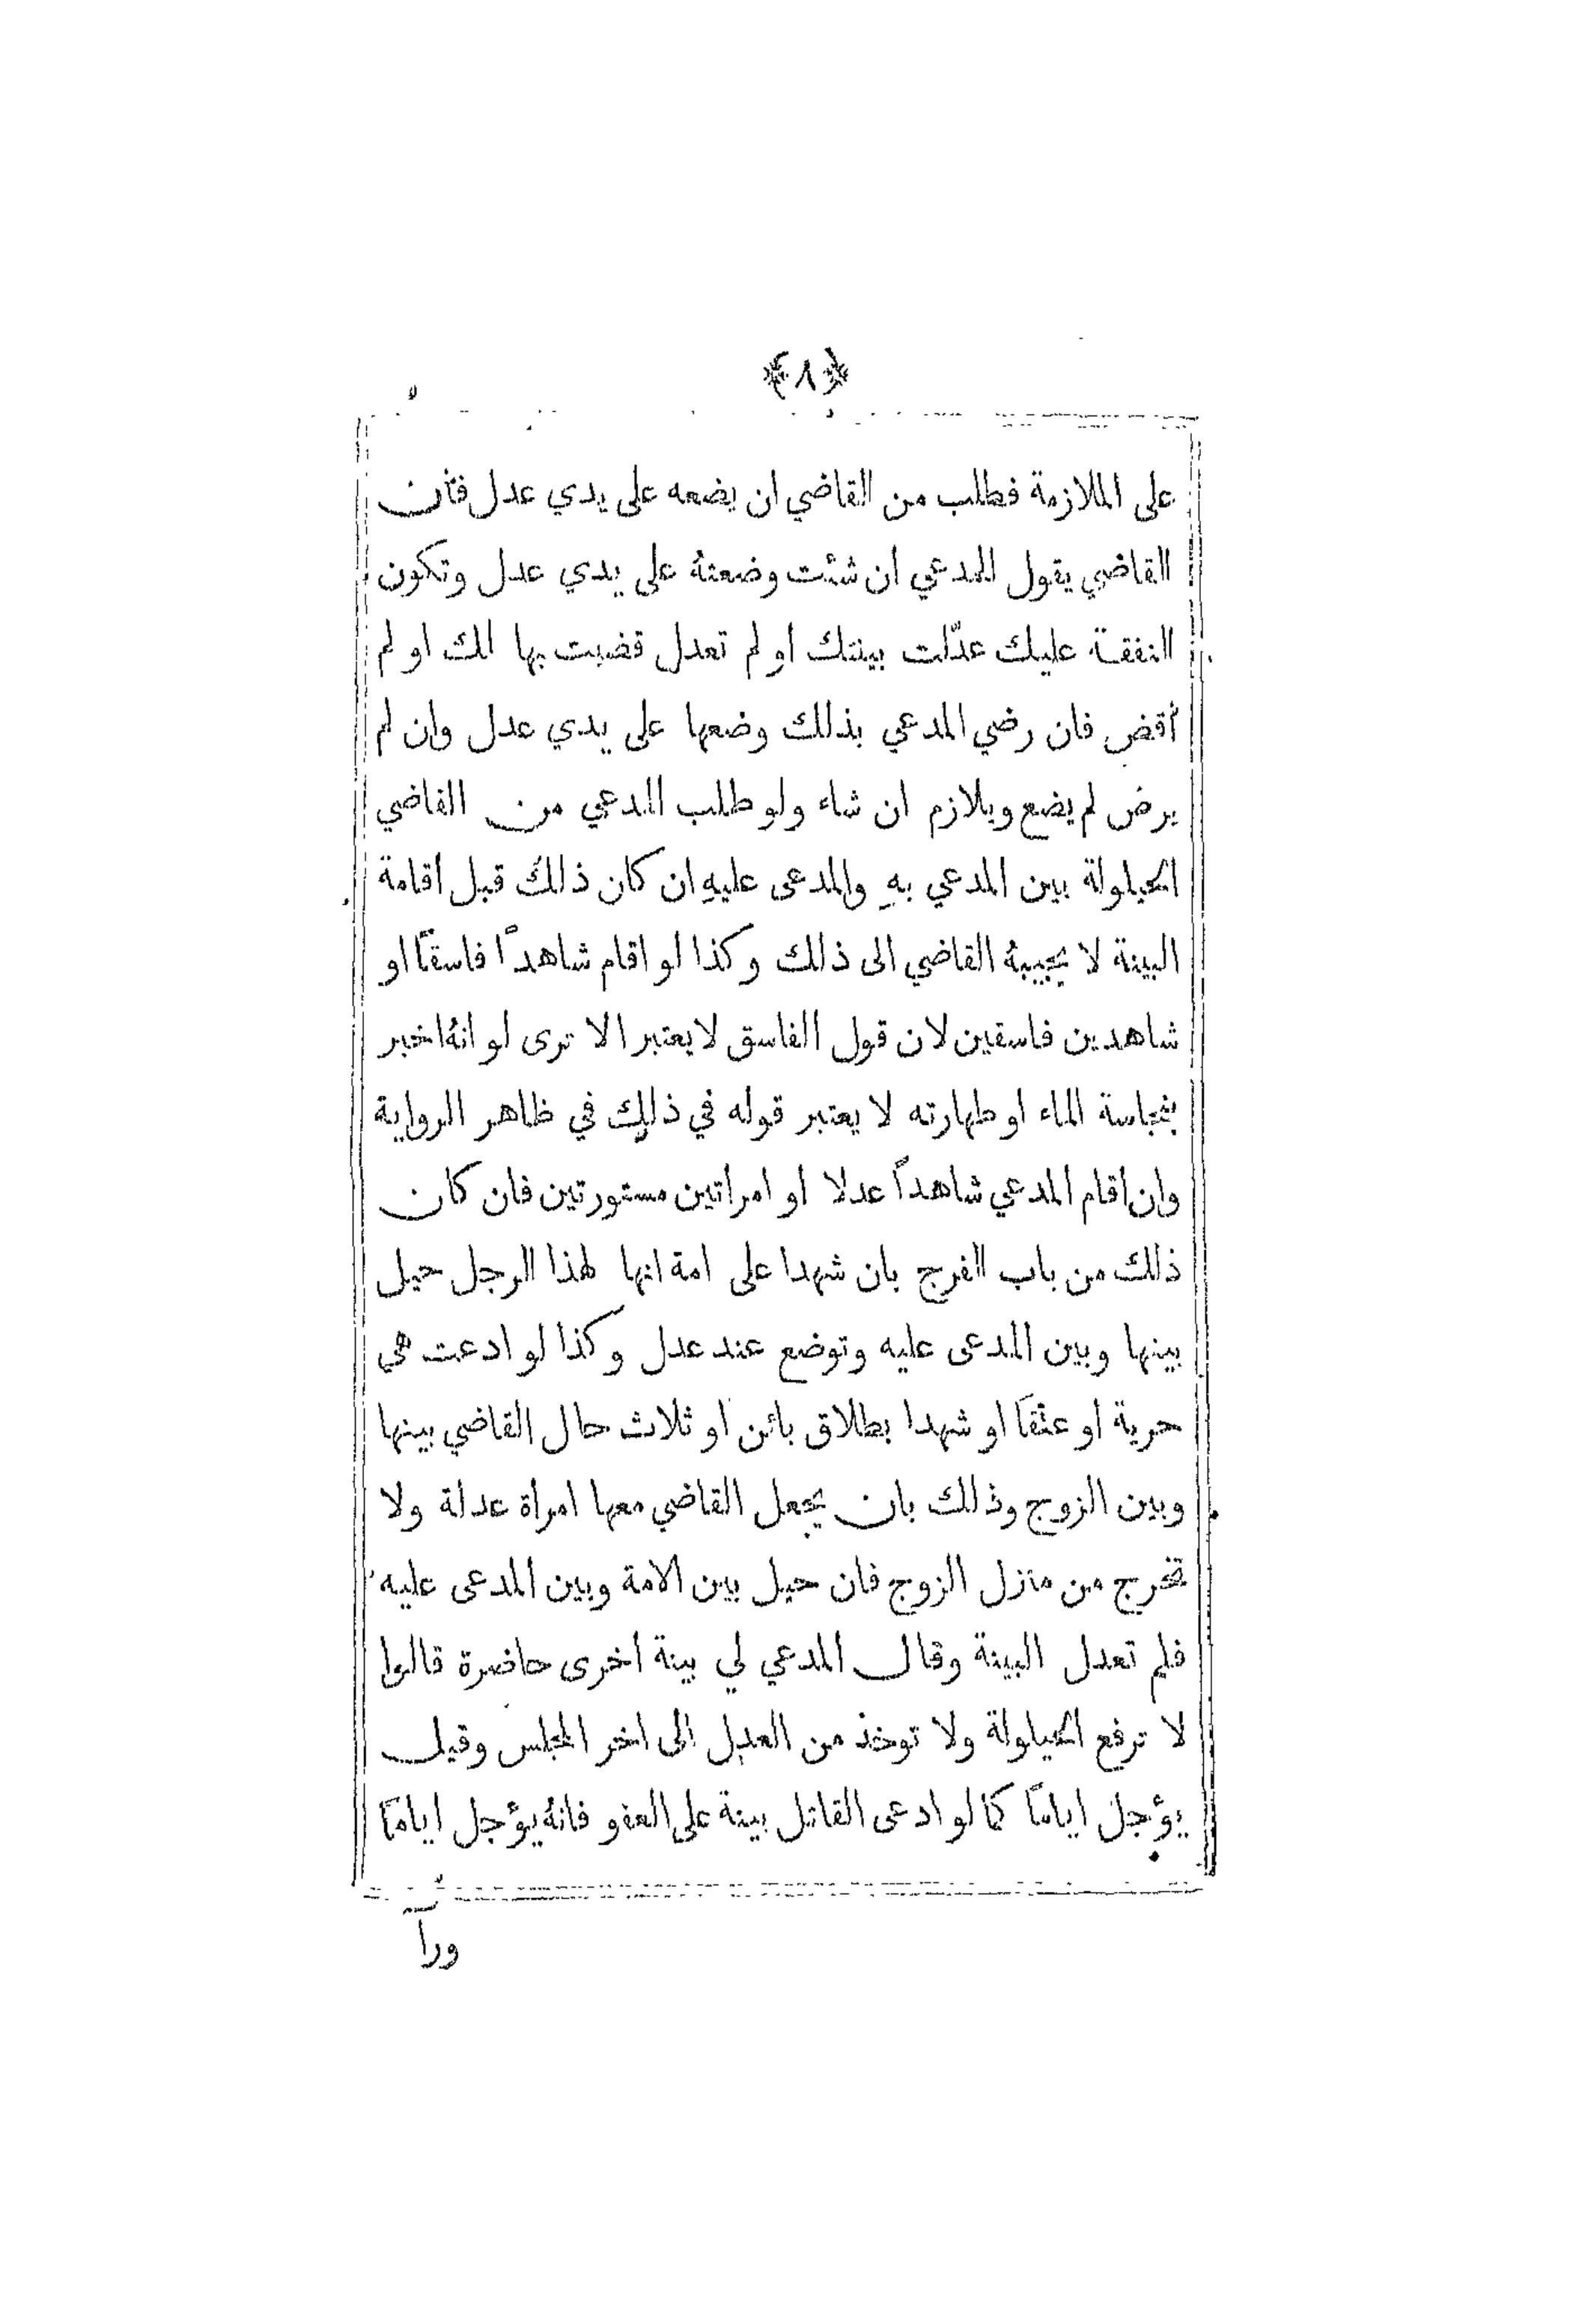 ﴿٨﴾
على الملازمة فطلب من القاضي ان يضعه على يدي عدل فان
القاضي يقول للمدعي ان شئت وضعتهُ على يدي عدل وتكون
النفقة عليك عدّلت بينتك او لم تعدل قضيت بها لك او لم
أقض فان رضي المدعي بذلك وضعها على يدي عدل وان لم
يرض لم يضع ويلازم ان شاء ولو طلب المدعي من القاضي
الحيلولة بين المدعي بهِ والمدعى عليهِ ان كان ذلك قبل اقامة
البينة لا يجيبهُ القاضي الى ذلك وكذا لو اقام شاهدًا فاسقًا او
شاهدين فاسقين لان قول الفاسق لا يعتبر الا ترى لو انهُ اخبر
بنجاسة الماء او طهارته لا يعتبر قوله في ذلك في ظاهر الرواية
وان اقام المدعي شاهداً عدلا او امراتين مستورتين فان كان
ذلك من باب الفرج بان شهدا على امة انها لهذا الرجل حيل
بينها وبين المدعى عليه وتوضع عند عدل وكذا لو ادعت هي
حرية او عتقًا او شهدا بطلاق بائن او ثلاث حال القاضي بينها
وبين الزوج وذلك بان يجعل القاضي معها امراة عدلة ولا
تخرج من منزل الزوج فان حيل بين الامة وبين المدعى عليه
فلم تعدل البينة وقال المدعي لي بينة اخرى حاضرة قالوا
لا ترفع الحيلولة ولا توخذ من العدل الى اخر المجلس وقيل
يؤجل ايامًا كما لو ادعى القاتل بينة على العفو فانهُ يؤجل ايامًا
ورآ